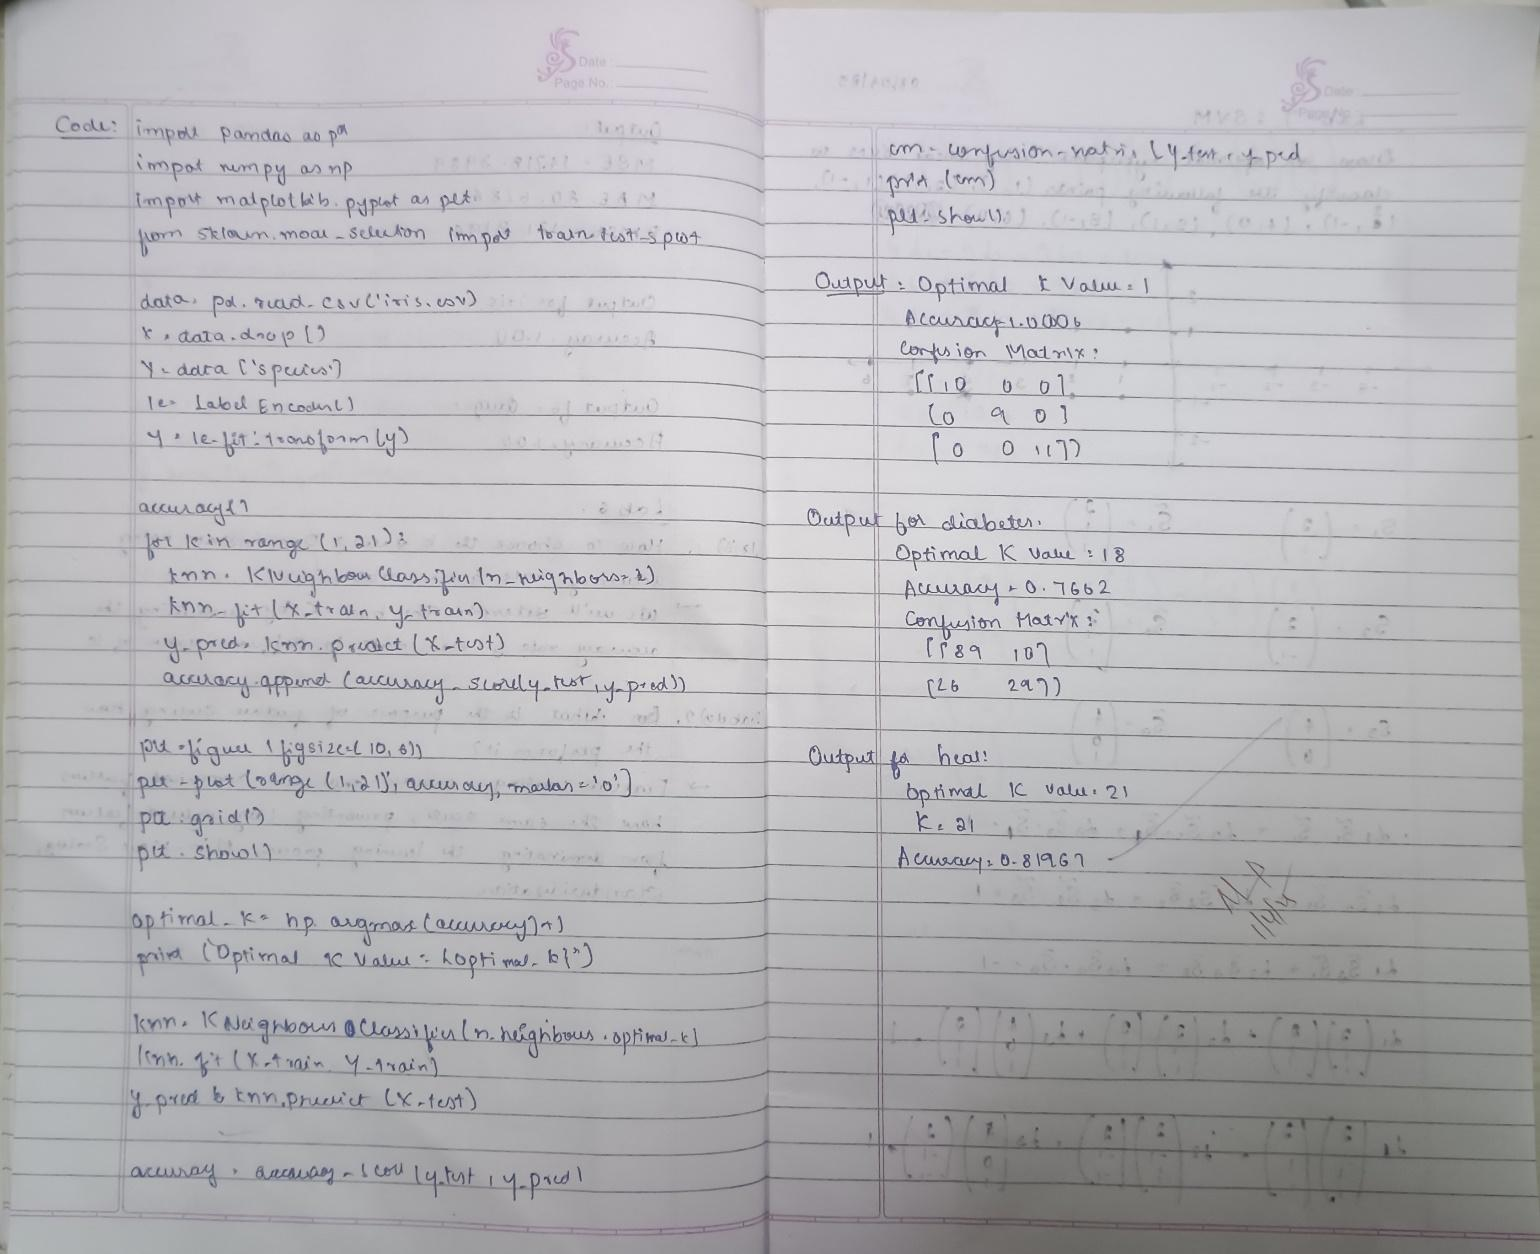 Date :
Page No. :
Code: import pandas as pd
import numpy as np
import matplotlib.pyplot as plt
from sklearn.model_selection import train_test_split
data = pd.read_csv('iris.csv)
X = data.drop()
Y = data ['species']
le = Label Encoder()
y = le.fit_transform(y)
accuracy[]
for k in range (1,21):
knn = KNeighbour Classifier (n_neighbors=k)
knn.fit (X_train, y_train)
y_pred = knn.predict (X_test)
accuracy.append (accuracy_score(y_test, y_pred))
plt.figure (figsize=(10,6))
plt.plot (range (1,21), accuracy, marker='o']
plt.grid()
plt.show()
optimal_k = np.argmax(accuracy)+1
print ("Optimal K Value = {optimal_k}")
knn = KNeighbours Classifier (n_neighbours = optimal_k)
knn.fit (X_train, y_train)
y_pred = knn.predict (X_test)
accuracy = accuracy_score (y_test, y_pred)
Date
cm = confusion_matrix (y_test, y_pred
print (cm)
plt.show().
Output : Optimal K Value = 1
Accuracy=1.0000
Confusion Matrix:
[[10 0 0]
[0 9 0]
[0 0 11]]
Output for diabetes.
Optimal K Value = 18
Accuracy = 0.7662
Confusion Matrix:
[[89 10]
[26 29]]
Output for heart:
Optimal K Value = 21
K = 21
Accuracy = 0.81967